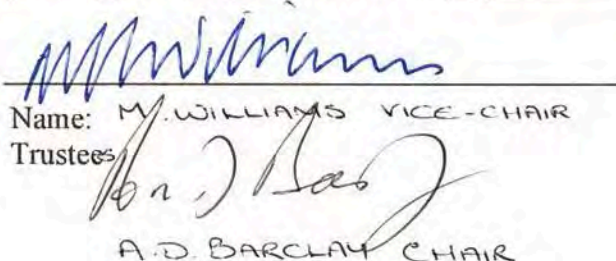 Name: M. WILLIAMS VICE-CHAIR
Trustees
A.D. BARCLAY CHAIR